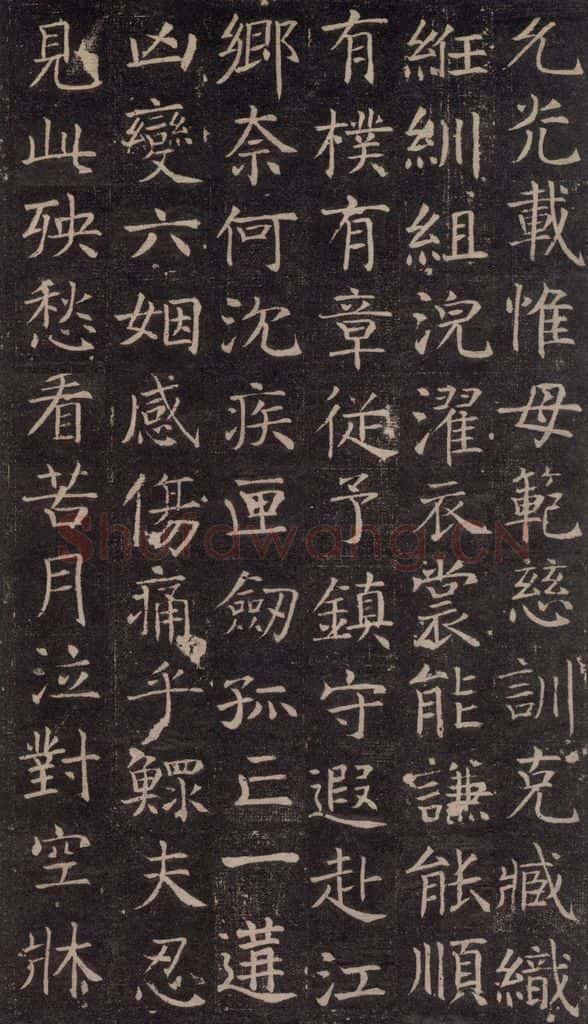 允光載惟母範慈訓克臧織
絍紃組浣濯衣裳能謙能順
有樸有章從予鎮守遐赴江
鄉奈何沈疾匣劒孤亡一遘
凶變六姻感傷痛乎鰥夫忍
見此殃愁看苦月泣對空牀
Shufawang.CN